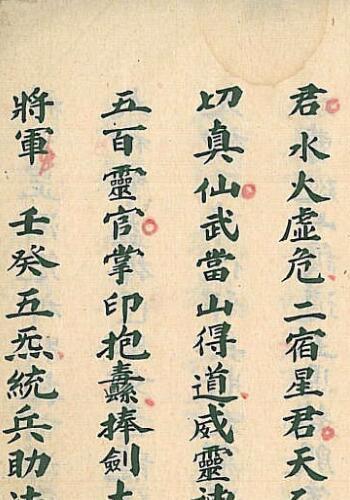 君水火虛危二宿星君天
切真仙武當山得道威靈諸
五百靈官掌印抱纛捧劍大
將軍 壬癸五炁統兵助法